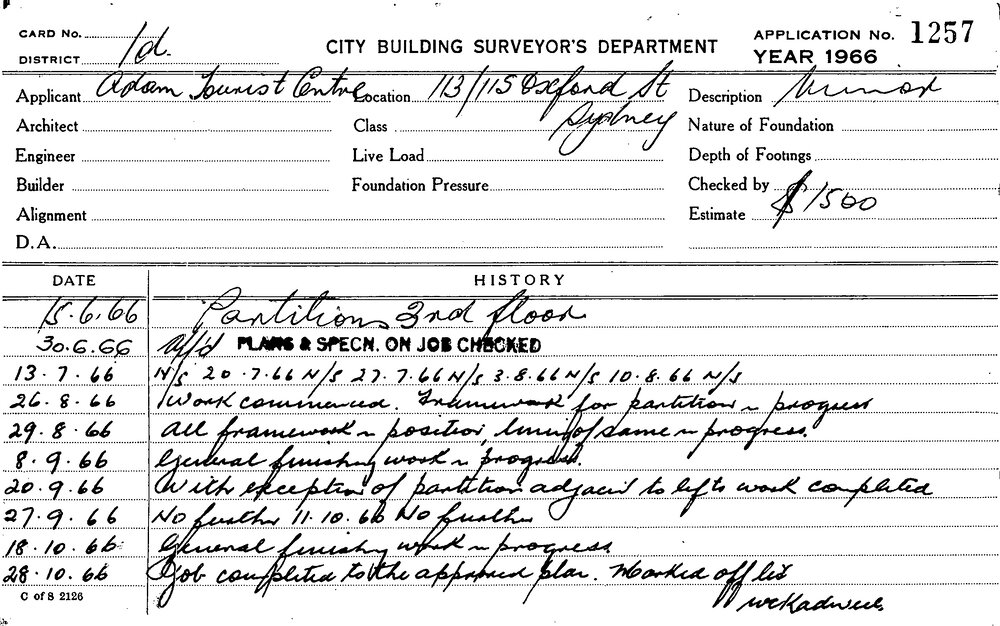 CARD No.
DISTRICT 1d.
CITY BUILDING SURVEYOR'S DEPARTMENT
APPLICATION No. 1257
YEAR 1966
Applicant Adam Tourist Centre Location 113/115 Oxford St Sydney Description Minor
Architect Class Nature of Foundation
Engineer Live Load Depth of Footings
Builder Foundation Pressure Checked by
Alignment Estimate $1500
D.A.
DATE HISTORY
15.6.66 Partitions 3rd floor
30.6.66 PLANS & SPECN. ON JOB CHECKED
13.7.66 N/S 20.7.66 N/S 27.7.66 N/S 3.8.66 N/S 10.8.66 N/S
26.8.66 Work commenced. Framework for partition in progress
29.8.66 All framework in position, lining of same in progress.
8.9.66 General finishing work in progress.
20.9.66 With exception of partition adjacent to lifts work completed
27.9.66 No further 11.10.66 No further
18.10.66 General finishing work in progress
28.10.66 Job completed to the approved plan. Marked off list
C of S 2126